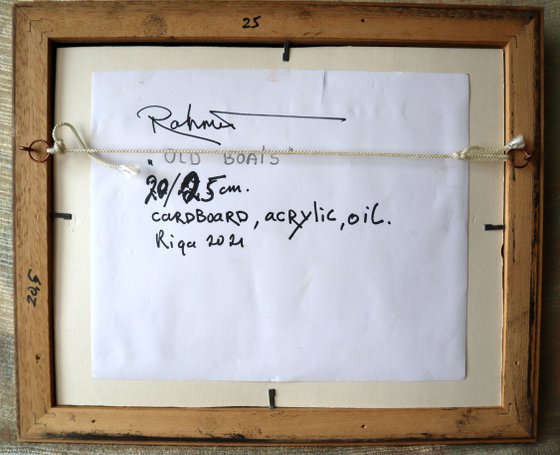 25
Rahmet
"OLD BOATS"
20/25 cm.
CARDBOARD, acrylic, oil.
Riga 2021
20,5